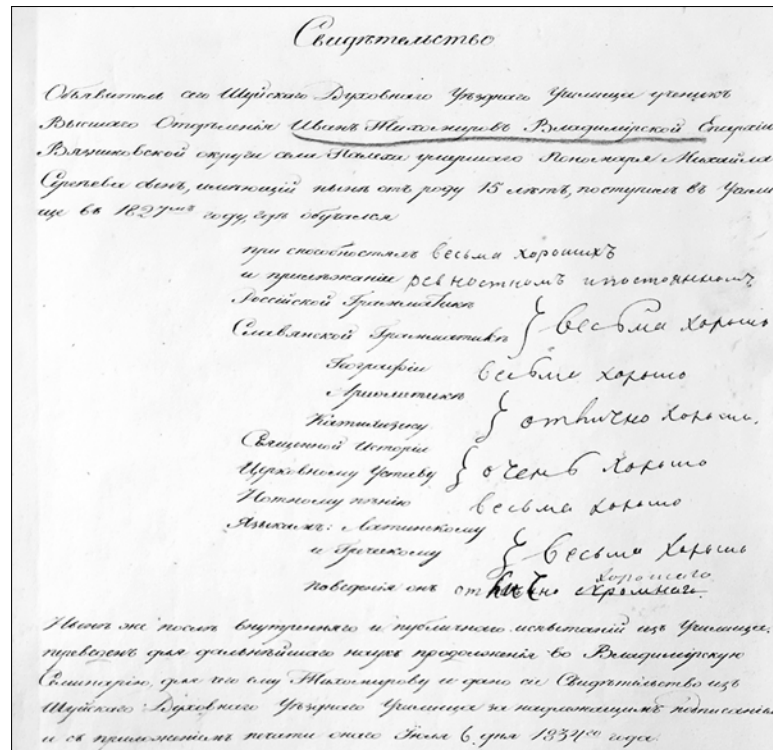 Свидѣтельство
Объявитель сего Шуйскаго Духовнаго Уѣзднаго Училища ученикъ
Высшаго Отдѣленія Иванъ Тихомировъ Владимірской Епархіи
Вязниковской округи села Палеха умершаго Пономаря Михайла
Сергѣева сынъ, имѣющій нынѣ отъ роду 15 лѣтъ, поступилъ въ Учили
ще въ 1827мъ году, гдѣ обучался
при способностяхъ весьма хорошихъ
и прилѣжаніи ревностномъ и постоянномъ
Россійской Грамматикѣ
Славянской Грамматикѣ } весьма хорошо
Географіи весьма хорошо
Ариѳметикѣ
Катихизису } отлично хорошо.
Священной Исторіи
Церковному Уставу } очень хорошо
Нотному пѣнію весьма хорошо
Языкамъ: Латинскому
и Греческому } весьма хорошо
хорошаго
поведенія онъ отлично скромнаго.
Нынѣ же послѣ внутренняго и публичнаго испытаній изъ Училища,
переведенъ для дальнѣйшаго наукъ продолженія во Владимірскую
Семинарію, для чего ему Тихомирову и дано сіе Свидѣтельство изъ
Шуйскаго Духовнаго Уѣзднаго Училища за надлежащимъ подписаніемъ
и съ приложеніемъ печати онаго Іюля 6 дня 1834го года.